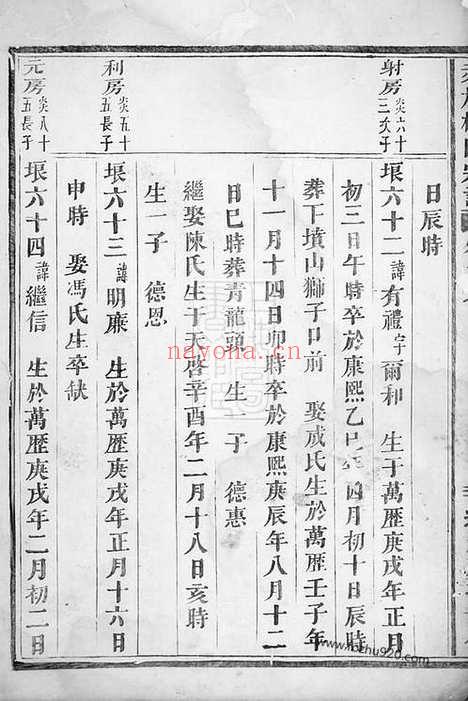 日辰時
射房炎六十三次子
垠六十二諱有禮字爾和 生于萬歷庚戌年正月
初三日午時卒於康熙乙巳年四月初十日辰時
葬下墳山獅子口前 娶成氏生於萬歷壬子年
十一月十四日卯時卒於康熙庚辰年八月十二
日巳時葬青龍頭 生一子 德惠
繼娶陳氏生于天啓辛酉年二月十八日亥時
生一子 德恩
利房炎五十五長子
垠六十三諱明廉 生於萬歷庚戌年正月十六日
申時 娶馮氏生卒缺
元房炎八十五長子
垠六十四諱繼信 生於萬歷庚戌年二月初二日
nayona.cn